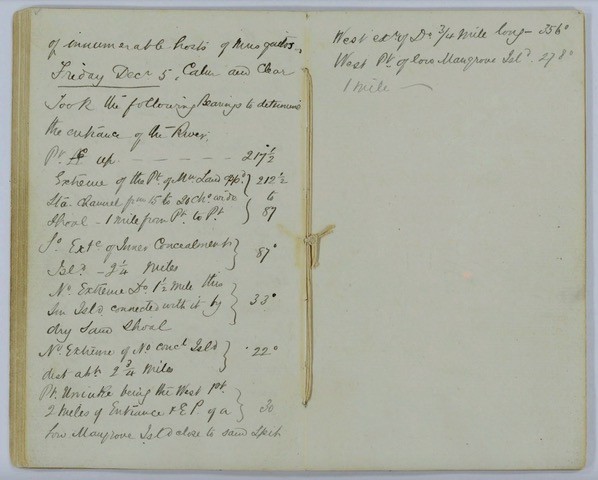 of innumerable hosts of Musquitos,
Friday Decr 5, Calm and Clear
Took the following Bearings to determine
the entrance of the River.
Pt. up - - - - - 217½
Extreme of the Pt. of Mn. Land opp. 212½
Sta. Channel from 15 to 20 Ch. wide to
Shoal - 1 mile from Pt. to Pt. 87
So. Exte of Inner Concealment 87°
Isld. - 2¼ Miles
No. Extreme Do. 1½ Mile this 33°
Sm Isld connected with it by
dry Sand Shoal
No. Extreme of No. Concl. Isld 22°
dist abt. 2¾ Miles
Pt. being the West pt.
2 Miles of Entrance & E.P. of a 30
low Mangrove Isld close to sand Spit
West ext. of Do. ¾ Mile long - 356°
West Pt. of low Mangrove Isld. 278°
1 mile —